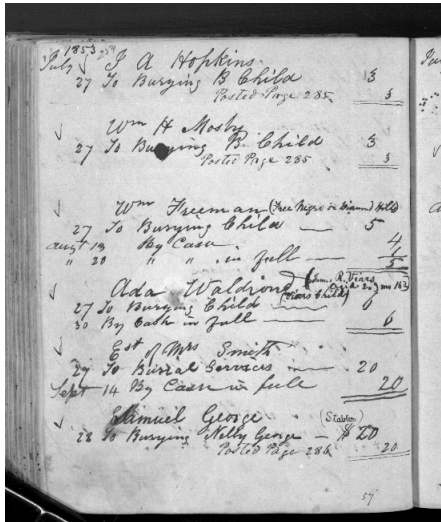 1853
July J A Hopkins
27 To Burying B Child 3
Posted Page 285 3
Wm H Mosby
27 To Burying B. Child 3
Posted Page 285 3
Wm Freeman (Free Negro in Diamond Hill)
27 To Burying Child — 5
Augt 13 By Cash 4
" 20 " " in full — 1
5
Ada Waldron
(Viars Child)
27 To Burying Child 6
30 By Cash in full 6
Est of Mrs Smith
29 To Burial Services — 20
Sept 14 By Cash in full 20
Samuel George (Stabler)
28 To Burying Nelly George — $ 20
Posted Page 286 20
57